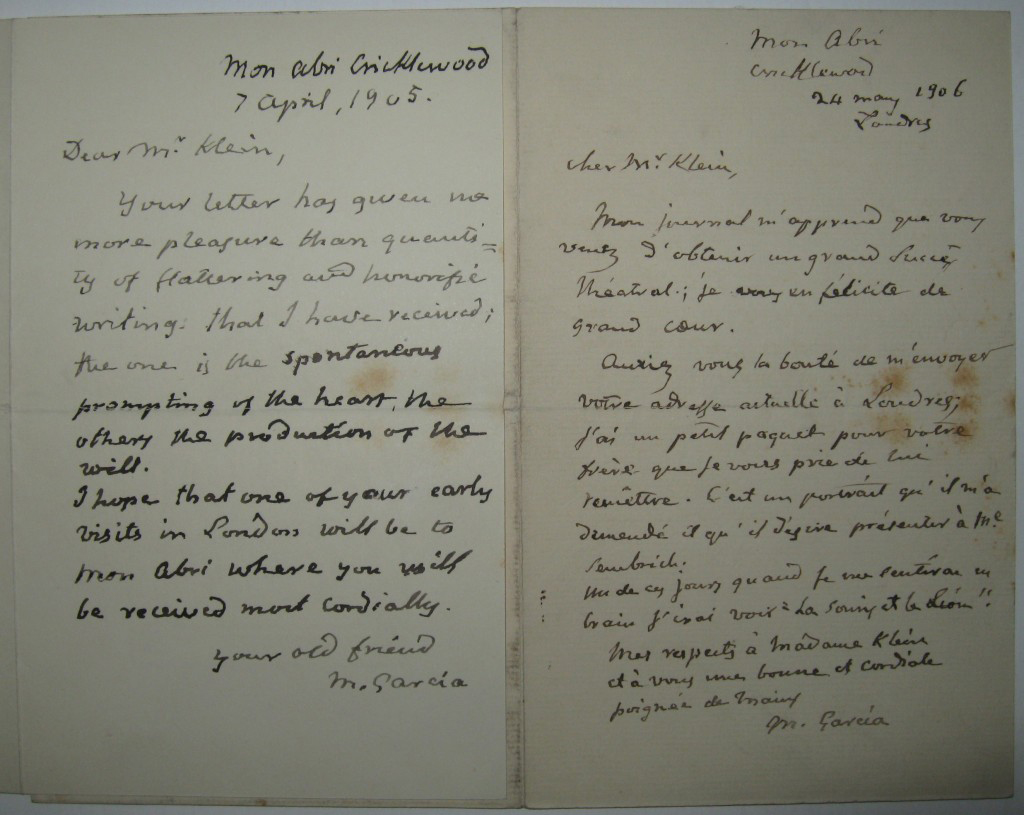 Mon Abri Cricklewood
7 April, 1905.
Dear Mr Klein,
Your letter has given me
more pleasure than quanti=
ty of flattering and honorific
writing: that I have received;
the one is the spontaneous
prompting of the heart, the
others the production of the
will.
I hope that one of your early
visits in London will be to
Mon Abri where you will
be received most cordially.
your old friend
M. Garcia
Mon Abri
Cricklewood
24 may 1906
Londres
cher Mr Klein,
Mon journal m'apprend que vous
venez d'obtenir un grand succès
théatral; je vous en félicite de
grand cœur.
Auriez vous la bonté de m'envoyer
votre adresse actuelle à Londres;
j'ai un petit paquet pour votre
frère que je vous prie de lui
remettre. C'est un portrait qu'il m'a
demandé et qu'il désire présenter à Me
Sembrich.
Un de ces jours quand je me sentirai en
train j'irai voir "La souris et le Lion".
Mes respects à Madame Klein
et à vous une bonne et cordiale
poignée de mains
M. Garcia